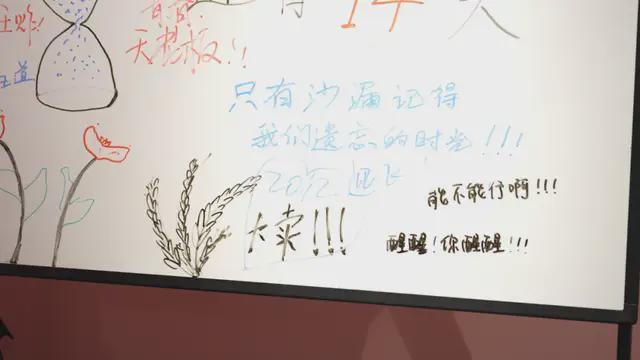 14天
天花板!!
王道
只有沙漏记得
我们遗忘的时光!!!
大卖!!!
能不能行啊!!!
醒醒!你醒醒!!!